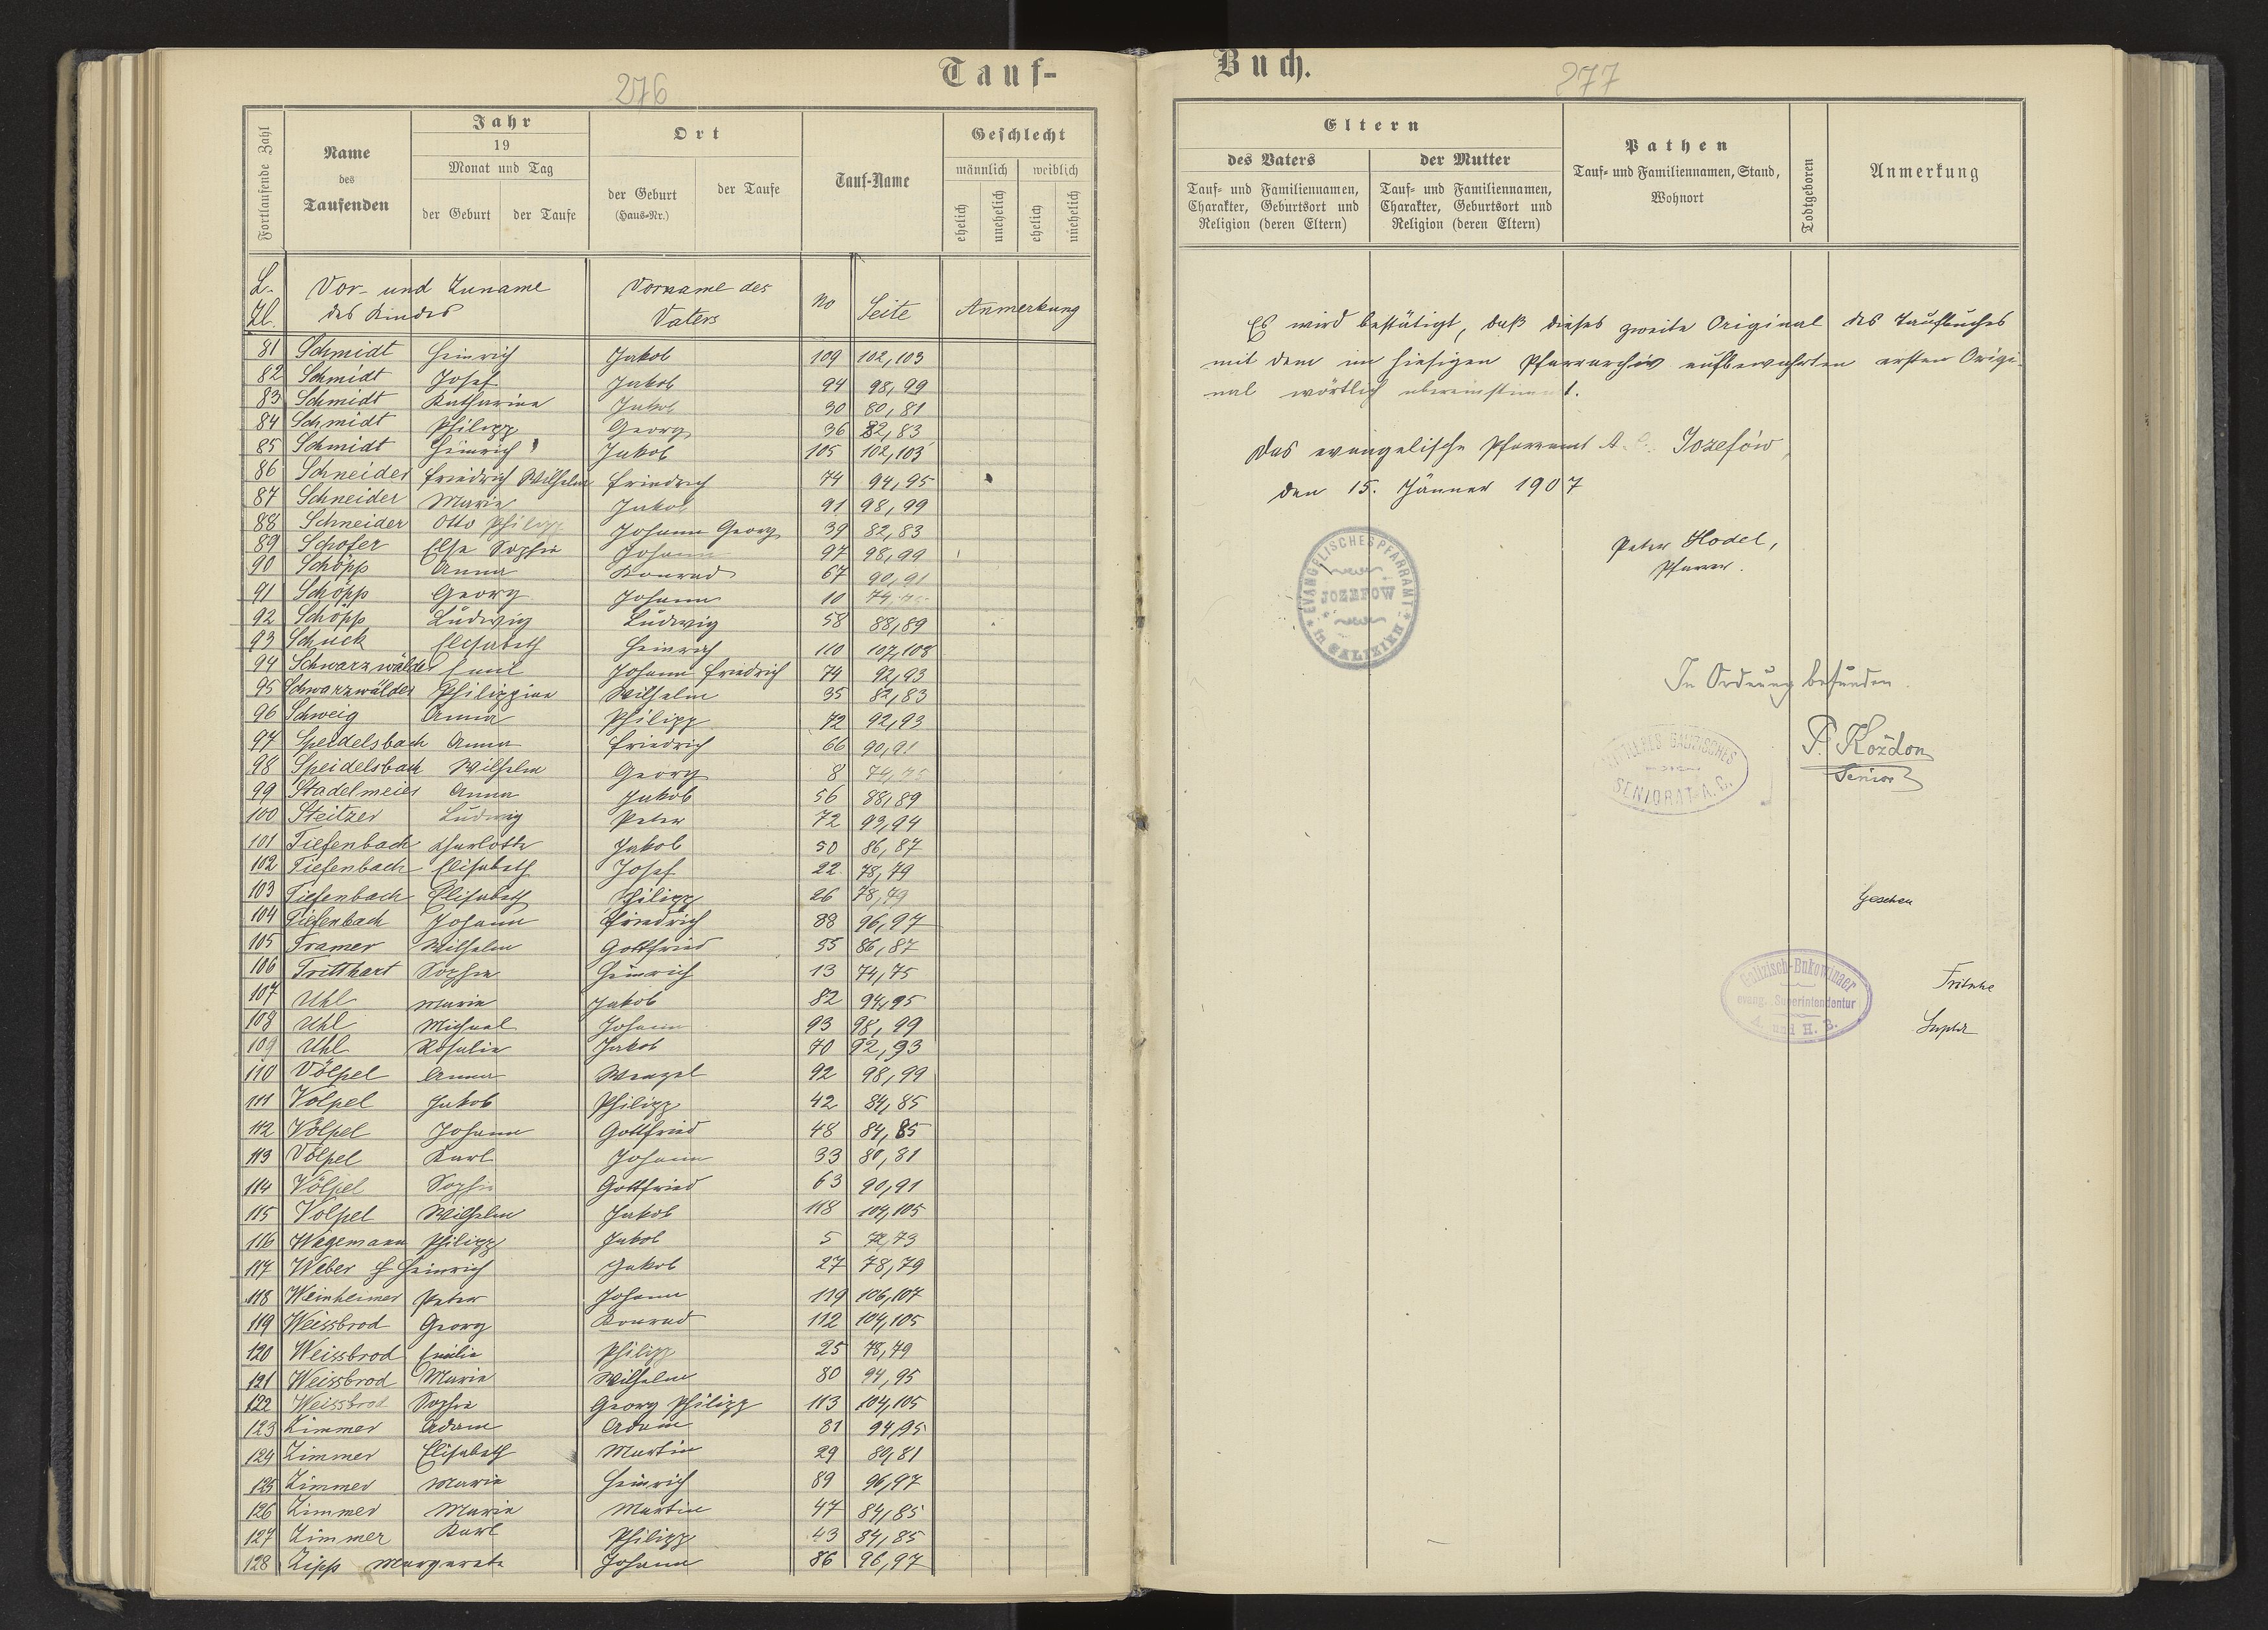 Tauf-
276
Fortlaufende Zahl
Name
des
Taufenden
Jahr
19
Monat und Tag
der Geburt
der Taufe
Ort
der Geburt
(Haus-Nr.)
der Taufe
Tauf-Name
Geschlecht
männlich
weiblich
ehelich
unehelich
ehelich
unehelich
L. Zl.
Vor- und Zuname des Kindes
Vorname des Vaters
No
Seite
Anmerkung
81 Schmidt Heinrich Jakob 109 102,103
82 Schmidt Josef Jakob 94 98,99
83 Schmidt Katharina Jakob 30 80,81
84 Schmidt Philipp Georg 36 82,83
85 Schmidt Heinrich Jakob 105 102,103
86 Schneider Friedrich Wilhelm Friedrich 74 94,95
87 Schneider Maria Jakob 91 98,99
88 Schneider Otto Philipp Johann Georg 39 82,83
89 Schofer Elsa Sophie Johann 97 98,99
90 Schöpp Anna Konrad 67 90,91
91 Schöpp Georg Johann 10 74,75
92 Schöpp Ludwig Ludwig 58 88,89
93 Schuck Elisabeth Heinrich 110 107,108
94 Schwarzwälder Emil Johann Friedrich 74 92,93
95 Schwarzwälder Philippine Wilhelm 35 82,83
96 Schweig Anna Philipp 72 92,93
97 Speidelsbach Anna Friedrich 66 90,91
98 Speidelsbach Wilhelm Georg 8 74,75
99 Stadelmeier Anna Jakob 56 88,89
100 Steitzer Ludwig Peter 72 93,94
101 Tiefenbach Charlotte Jakob 50 86,87
102 Tiefenbach Elisabeth Josef 22 78,79
103 Tiefenbach Elisabeth Philipp 26 78,79
104 Tiefenbach Johann Friedrich 88 96,97
105 Tramer Wilhelm Gottfried 55 86,87
106 Tritthart Sophie Heinrich 13 74,75
107 Uhl Maria Jakob 82 94,95
108 Uhl Michael Johann 93 98,99
109 Uhl Rosalie Jakob 70 92,93
110 Völpel Anna Wenzel 92 98,99
111 Völpel Jakob Philipp 42 84,85
112 Völpel Johann Gottfried 48 84,85
113 Völpel Karl Johann 33 80,81
114 Völpel Sophie Gottfried 63 90,91
115 Völpel Wilhelm Jakob 118 104,105
116 Wagemann Philipp Jakob 5 72,73
117 Weber Heinrich Jakob 27 78,79
118 Weinheimer Peter Johann 119 106,107
119 Weissbrod Georg Konrad 112 104,105
120 Weissbrod Emilie Philipp 25 78,79
121 Weissbrod Maria Wilhelm 80 94,95
122 Weissbrod Sophie Georg Philipp 113 104,105
123 Zimmer Adam Adam 81 94,95
124 Zimmer Elisabeth Martin 29 80,81
125 Zimmer Maria Heinrich 89 96,97
126 Zimmer Maria Martin 47 84,85
127 Zimmer Karl Philipp 43 84,85
128 Zipp Margareta Johann 86 96,97
Buch.
277
Eltern
des Vaters
Tauf- und Familiennamen,
Charakter, Geburtsort und
Religion (deren Eltern)
der Mutter
Tauf- und Familiennamen,
Charakter, Geburtsort und
Religion (deren Eltern)
Pathen
Tauf- und Familiennamen, Stand,
Wohnort
Todtgeboren
Anmerkung
Es wird bestätigt, daß dieses zweite Original des Taufbuches
mit dem im hiesigen Pfarrarchiv aufbewahrten ersten Origi-
nal wörtlich übereinstimmt.
Das evangelische Pfarramt A. Jozefów,
den 15. Jänner 1907
EVANGELISCHES PFARRAMT
JOZEFOW
in GALIZIEN
Peter Hodel,
Pfarrer.
In Ordnung befunden.
MITTLERES GALIZISCHES
SENIORAT A. C.
P. Kozdon
Senior
Gesehen
Galizisch-Bukowinaer
evang. Superintendentur
A. und H. B.
Fritsche
Suptdt